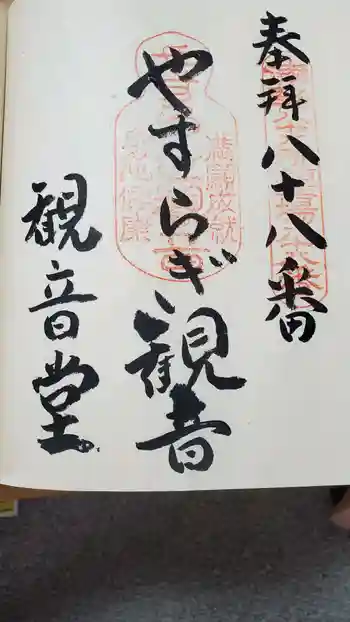 奉拜八十八番
やすらぎ観音
観音堂
満願成就